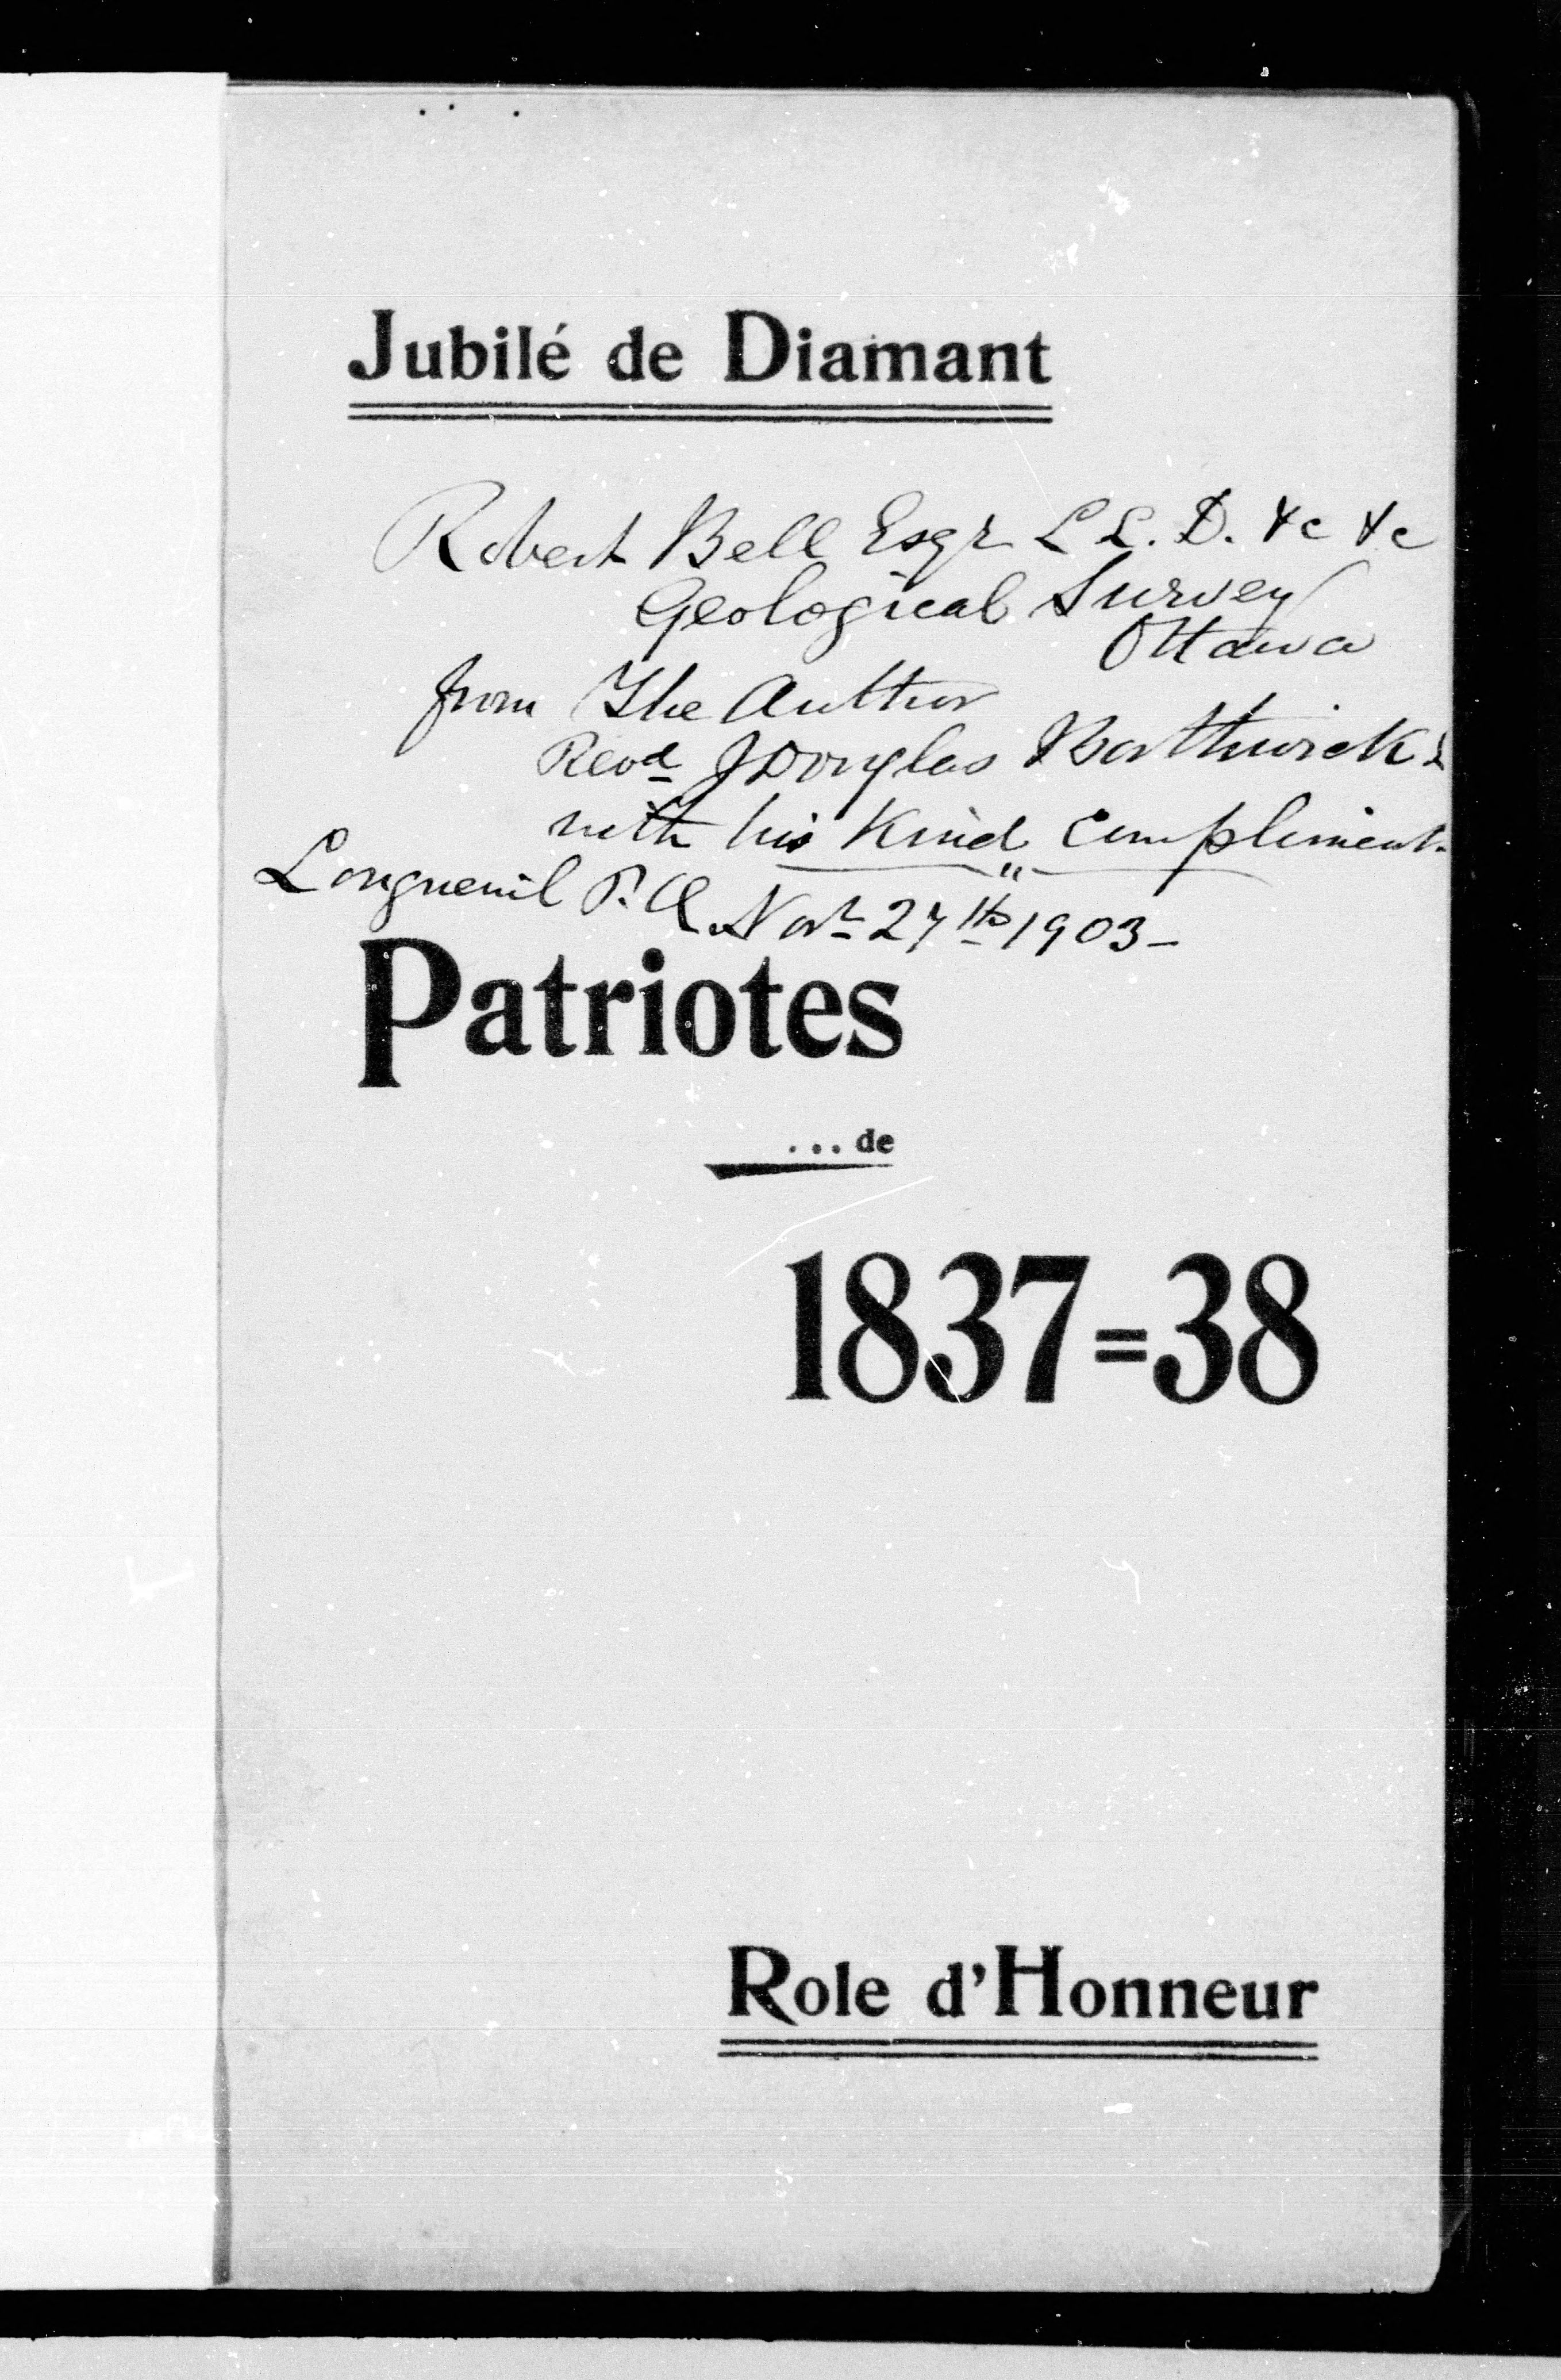 Jubilé de Diamant
Robert Bell Esqr L L. D. &c &c
Geological Survey
Ottawa
from The Author
Revd J Douglas Borthwick
with his Kind compliment
Longueuil P. Q. Novr 27th 1903 -
Patriotes
... de
1837=38
Role d'Honneur